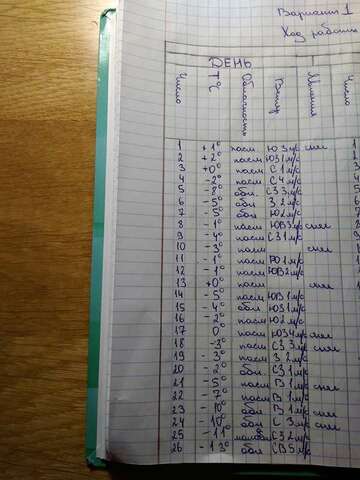 Вариант 1
Ход работы
ДЕНЬ
Число Т°С Облачность Ветер Явления Число
1 +1° пасм Ю З м/с снег
2 +2° пасм ЮЗ 1 м/с
3 +0° пасм С 1 м/с
4 -2° пасм С 4 м/с
5 -8° обл. СЗ 3 м/с
6 -5° обл З 2 м/с
7 -5° обл Ю 2 м/с
8 -1° пасм ЮВ 3 м/с снег
9 -4° пасм СЗ 1 м/с
10 -3° пасм снег
11 -1° пасм Ю 1 м/с
12 -1° пасм ЮВ 2 м/с
13 +0° пасм снег
14 -5° пасм ЮВ 1 м/с
15 -4° обл ЮЗ 1 м/с
16 -2° пасм Ю 2 м/с
17 0° пасм ЮЗ 4 м/с снег
18 -3° пасм СЗ 3 м/с снег
19 -3° пасм З 2 м/с
20 -2° обл. СЗ 1 м/с
21 -5° пасм В 1 м/с снег
22 -7° пасм В 1 м/с
23 -10° обл В 1 м/с снег
24 -10° обл. С 3 м/с снег
25 -11° малообл СЗ 2 м/с
26 -13° обл СВ 5 м/с